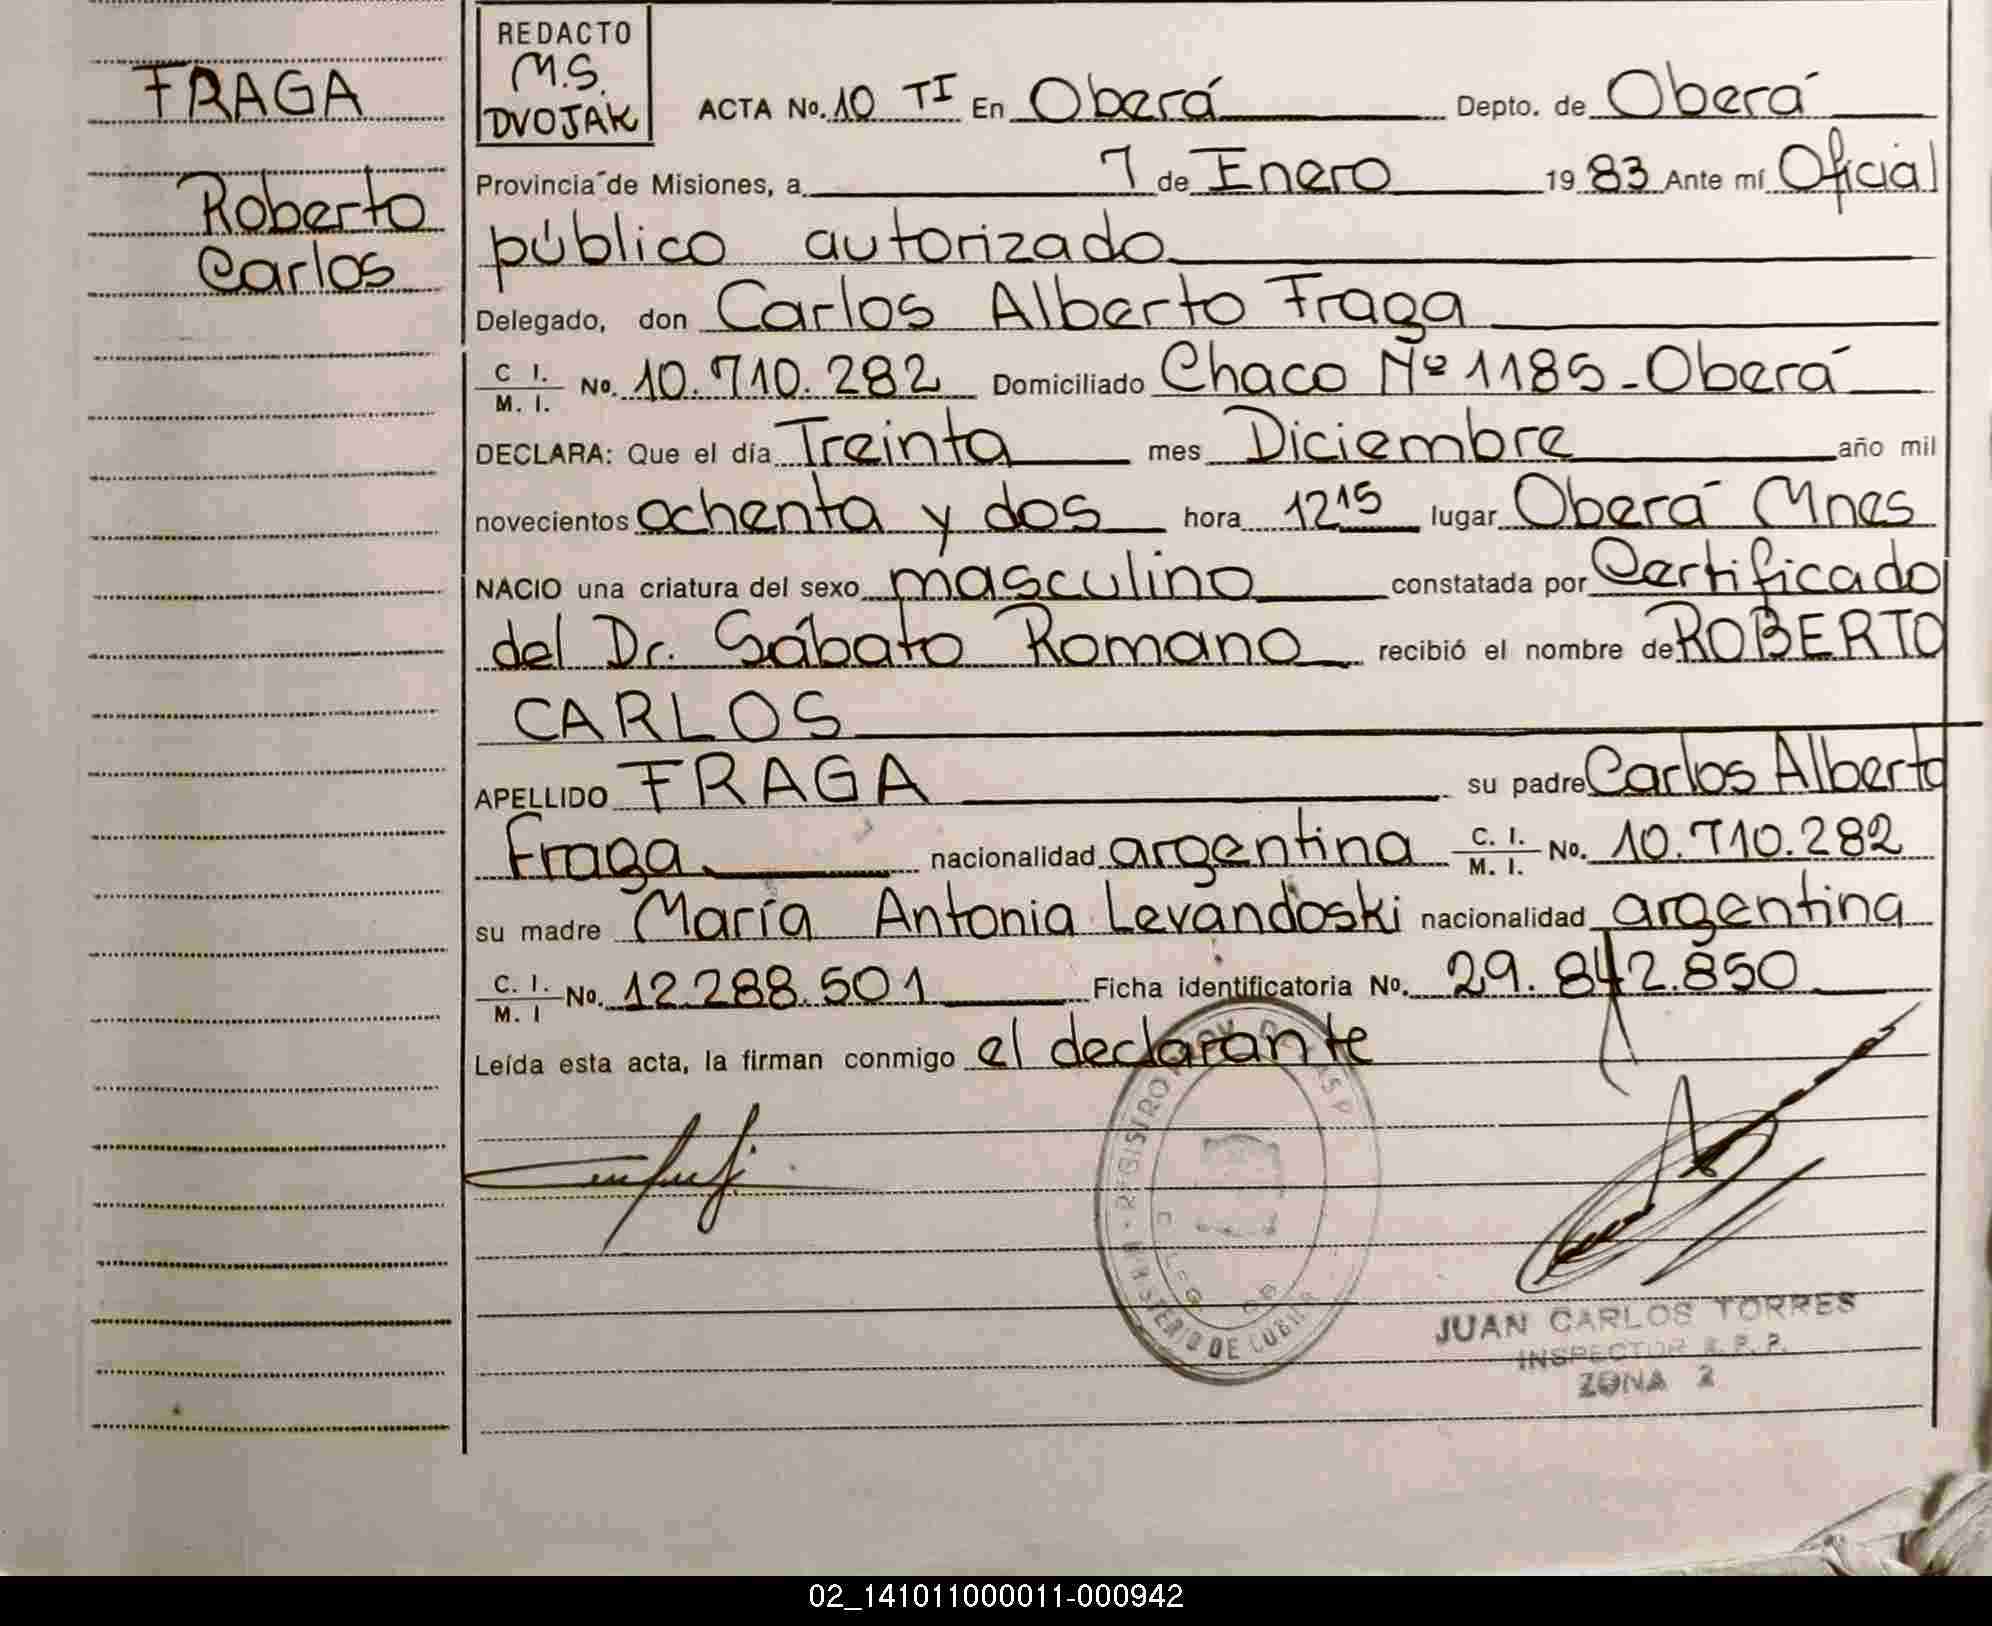 FRAGA
Roberto
Carlos
REDACTO
M.S.
DVOJAK
ACTA No. 10 TI En Oberá Depto. de Oberá
Provincia de Misiones, a 7 de Enero 1983 Ante mí Oficial
público autorizado
Delegado, don Carlos Alberto Fraga
C I. M. I. No. 10.710.282 Domiciliado Chaco Nº 1185 - Oberá
DECLARA: Que el día Treinta mes Diciembre año mil
novecientos ochenta y dos hora 12 15 lugar Oberá Mnes
NACIO una criatura del sexo masculino constatada por Certificado
del Dr. Sábato Romano recibió el nombre de ROBERTO
CARLOS
APELLIDO FRAGA su padre Carlos Alberto
Fraga nacionalidad argentina C. I. M. I. No. 10.710.282
su madre María Antonia Levandoski nacionalidad argentina
C. I. M. I No. 12.288.501 Ficha identificatoria No. 29.842.850
Leída esta acta, la firman conmigo el declarante
REGISTRO
MINISTERIO DE GOBIER
JUAN CARLOS TORRES
INSPECTOR R. P. P.
ZONA 2
02_141011000011-000942